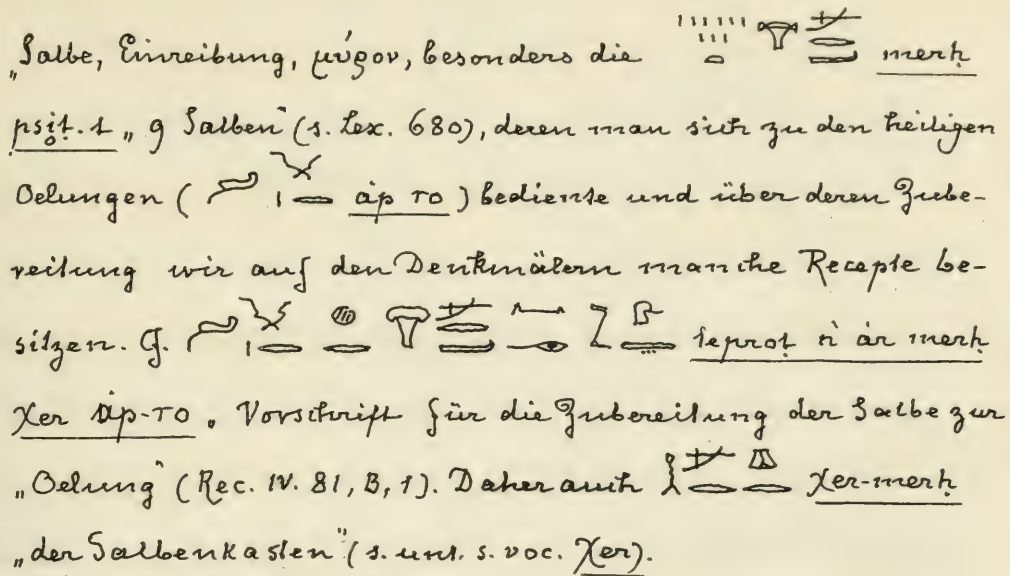 „Salbe, Einreibung, μύρον, besonders die merḥ
psiṭ.t „9 Salben“ (s. Lex. 680), deren man sich zu den heiligen
Oelungen ( áp ro ) bediente und über deren Zube-
reitung wir auf den Denkmälern manche Recepte be-
sitzen. Cf. teproṭ n ár merḥ
χer áp-ro „Vorschrift für die Zubereitung der Salbe zur
„Oelung“ (Rec. IV. 81, B, 1). Daher auch χer-merḥ
„der Salbenkasten“ (s. unt. s. voc. χer).